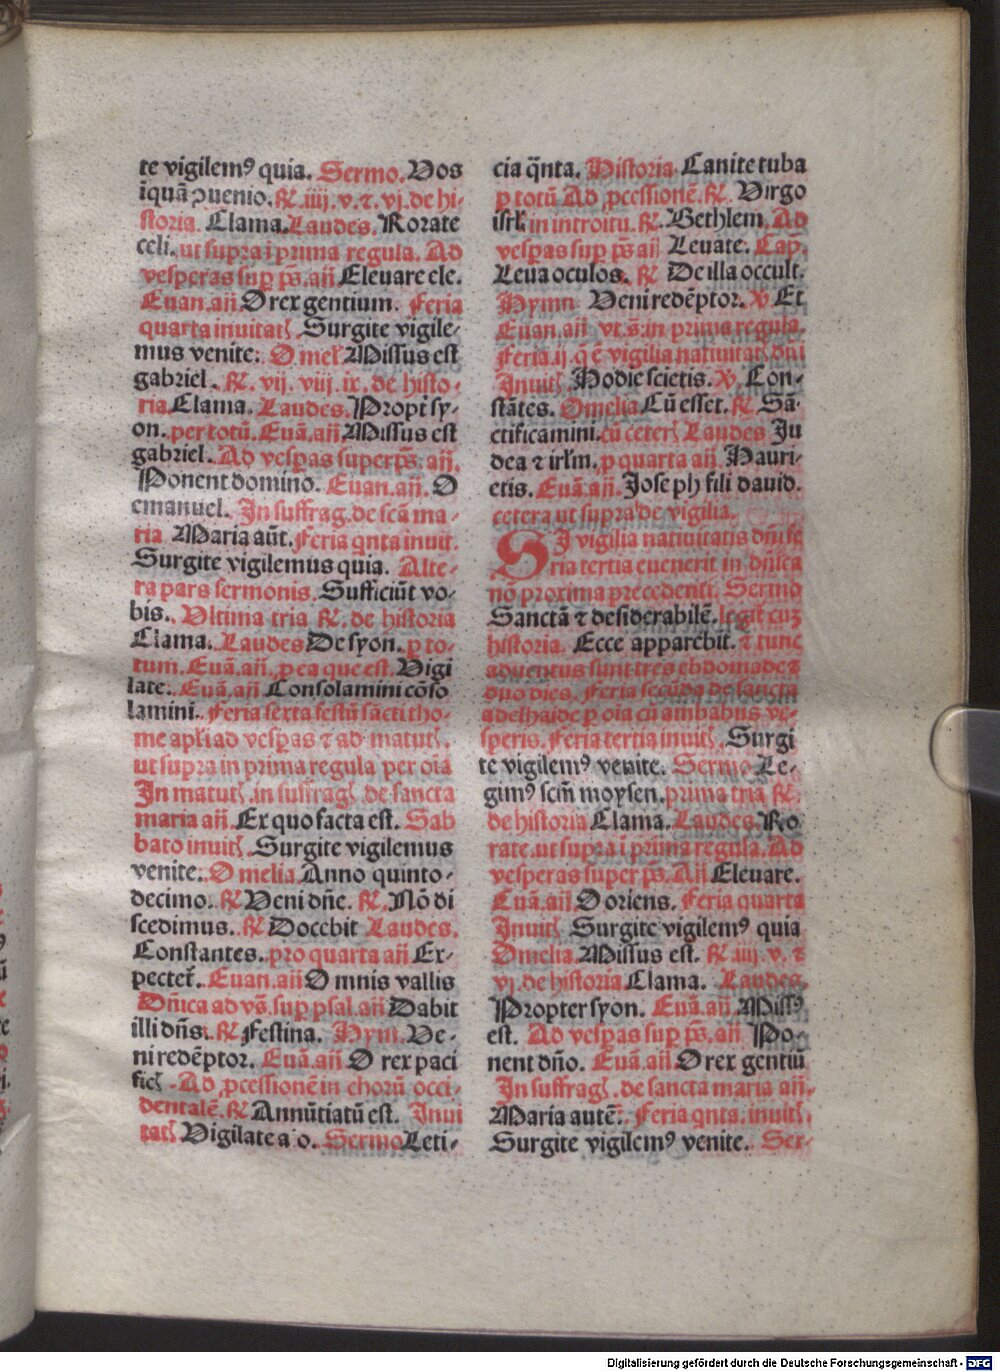 te vigilemꝰ quia. Sermo. Vos
īquā ꝓuenio. ℟. iiij. v. ⁊. vj. de hi-
storia. Clama. Laudes. Rorate
celi. ut supra ī prima regula. Ad
vesperas suꝑ p̄s. aij Eleuare ele.
Euan. aij O rex gentium. Feria
quarta inuitatꝭ Surgite vigile-
mus venite. Omel' Missus est
gabriel. ℟. vij. viij. ix. de histo-
ria. Clama. Laudes. Propt' sy-
on. per totū. Euā. aij Missus est
gabriel. Ad vesꝑas super p̄s. aij.
Ponent domino. Euan. aij. O
emanuel. In suffrag. de scā ma-
ria Maria aūt. Feria qͥnta inuit.
Surgite vigilemus quia. Alte-
ra pars sermonis. Sufficiūt vo-
bis. Vltima tria ℟. de historia
Clama. Laudes De syon. p to-
tum. Euā. aij. p ea que est. Vigi
late. Euā. aij Consolamini cōso
lamini. Feria sexta festū sācti tho-
me apl'i ad vesꝑas ⁊ ad matutꝭ.
ut supra in prima regula per oīa
In matutꝭ. in suffragꝭ de sancta
maria aij. Ex quo facta est. Sab
bato inuitꝭ Surgite vigilemus
venite. Omelia Anno quinto-
decimo. ℟ Veni dn̄e. ℟. Nō di
scedimus. ℟ Docebit Laudes.
Constantes. pro quarta aij Ex-
pectet'. Euan. aij Omnis vallis
Dn̄ica ad vs̄. suꝑ psal. aij Dabit
illi dn̄s. ℟ Festina. Hym. Ve-
ni redēptor. Euā. aij O rex paci
ficꝭ. Ad ꝓcessionē in chorū occi-
dentalē. ℟ Annūtiatū est. Inui
tatꝭ Vigilate aīo. Sermo Leti-
cia qͥnta. Historia. Canite tuba
p totū Ad ꝓcessionē. ℟. Virgo
isrl' in introitu ℟. Bethlem. Ad
vesꝑas suꝑ p̄s aij Leuate. Cap.
Leua oculos. ℟ De illa occult.
Hymn Veni redēptor. ℣ Et
Euan. aij vt. s̄. in prima regula.
Feria. ij. q̄ ē vigilia natiuitatꝭ dn̄i
Inuitꝭ Hodie scietis. ℣ Con-
stātes. Omelia Cū esset. ℟ Sā-
ctificamini. cū ceterꝭ Laudes Ju
dea ⁊ irl'm. p quarta aij. Hauri-
etis. Euā. aij. Joseph fili dauid.
cetera ut supra de vigilia.
SI vigilia natiuitatis dn̄i fe
ria tertia euenerit in dn̄ica
nō proxima precedenti. Sermo
Sanctā ⁊ desiderabilē. legit' cuȝ
historia. Ecce apparebit. ⁊ tunc
aduentus sunt tres ebdomade ⁊
duo dies. Feria secūda de sancta
adelhaide p oīa cū ambabus ve-
speris. Feria tertia inuitꝭ. Surgi
te vigilemꝰ venite. Sermo Le-
gimꝰ scm̄ moysen. prima tria ℟.
de historia Clama. Laudes. Ro
rate. ut supra ī prima regula. Ad
vesperas super p̄s. Aij Eleuare.
Euā. aij O oriens. Feria quarta
Inuitꝭ Surgite vigilemꝰ quia
Omelia Missus est. ℟. iiij. v. ⁊
vj. de historia Clama. Laudes.
Propter syon. Euā. aij Missꝰ
est. Ad vesꝑas suꝑ p̄s. aij Po-
nent dn̄o. Euā. aij O rex gentiū
In suffragꝭ. de sancta maria aij.
Maria autē. Feria qͥnta. inuitꝭ.
Surgite vigilemꝰ venite. Ser-
Digitalisierung gefördert durch die Deutsche Forschungsgemeinschaft - DFG